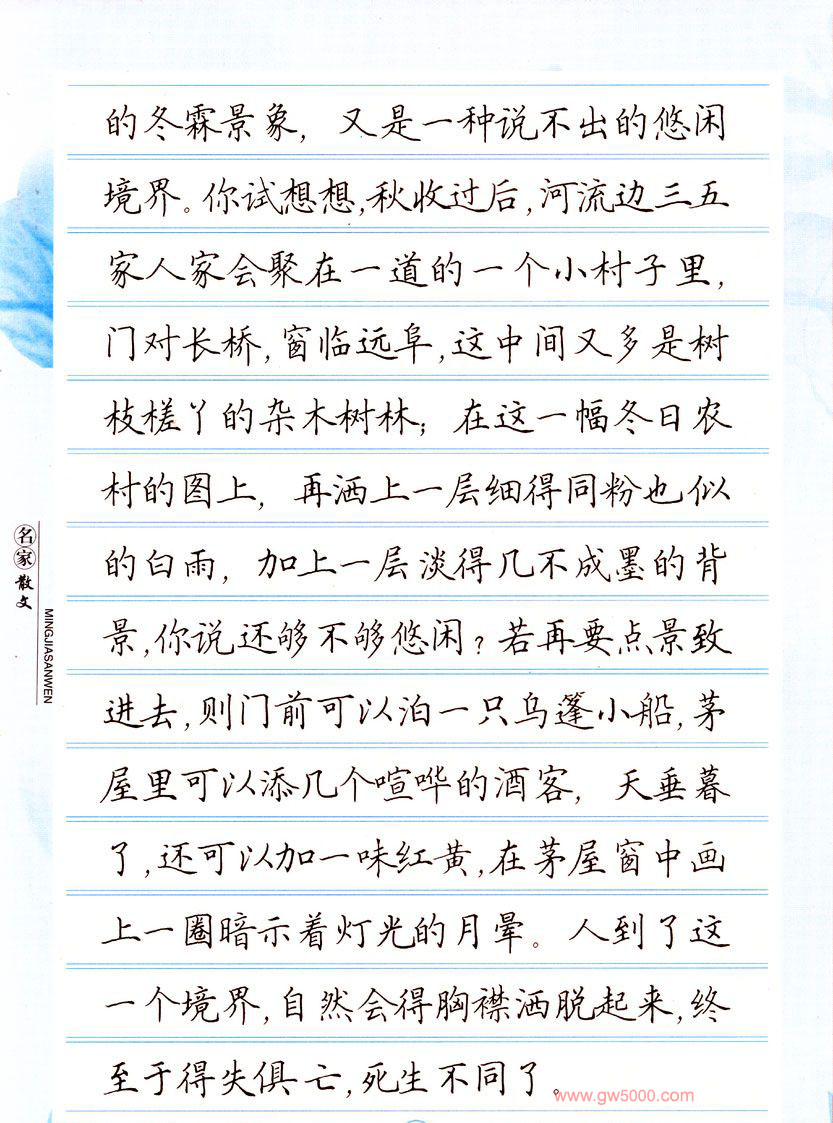 的冬霖景象，又是一种说不出的悠闲
境界。你试想想，秋收过后，河流边三五
家人家会聚在一道的一个小村子里，
门对长桥，窗临远阜，这中间又多是树
枝槎丫的杂木树林；在这一幅冬日农
村的图上，再洒上一层细得同粉也似
的白雨，加上一层淡得几不成墨的背
景，你说还够不够悠闲？若再要点景致
进去，则门前可以泊一只乌篷小船，茅
屋里可以添几个喧哗的酒客，天垂暮
了，还可以加一味红黄，在茅屋窗中画
上一圈暗示着灯光的月晕。人到了这
一个境界，自然会得胸襟洒脱起来，终
至于得失俱亡，死生不同了。
名家散文
MINGJIASANWEN
www.gw5000.com